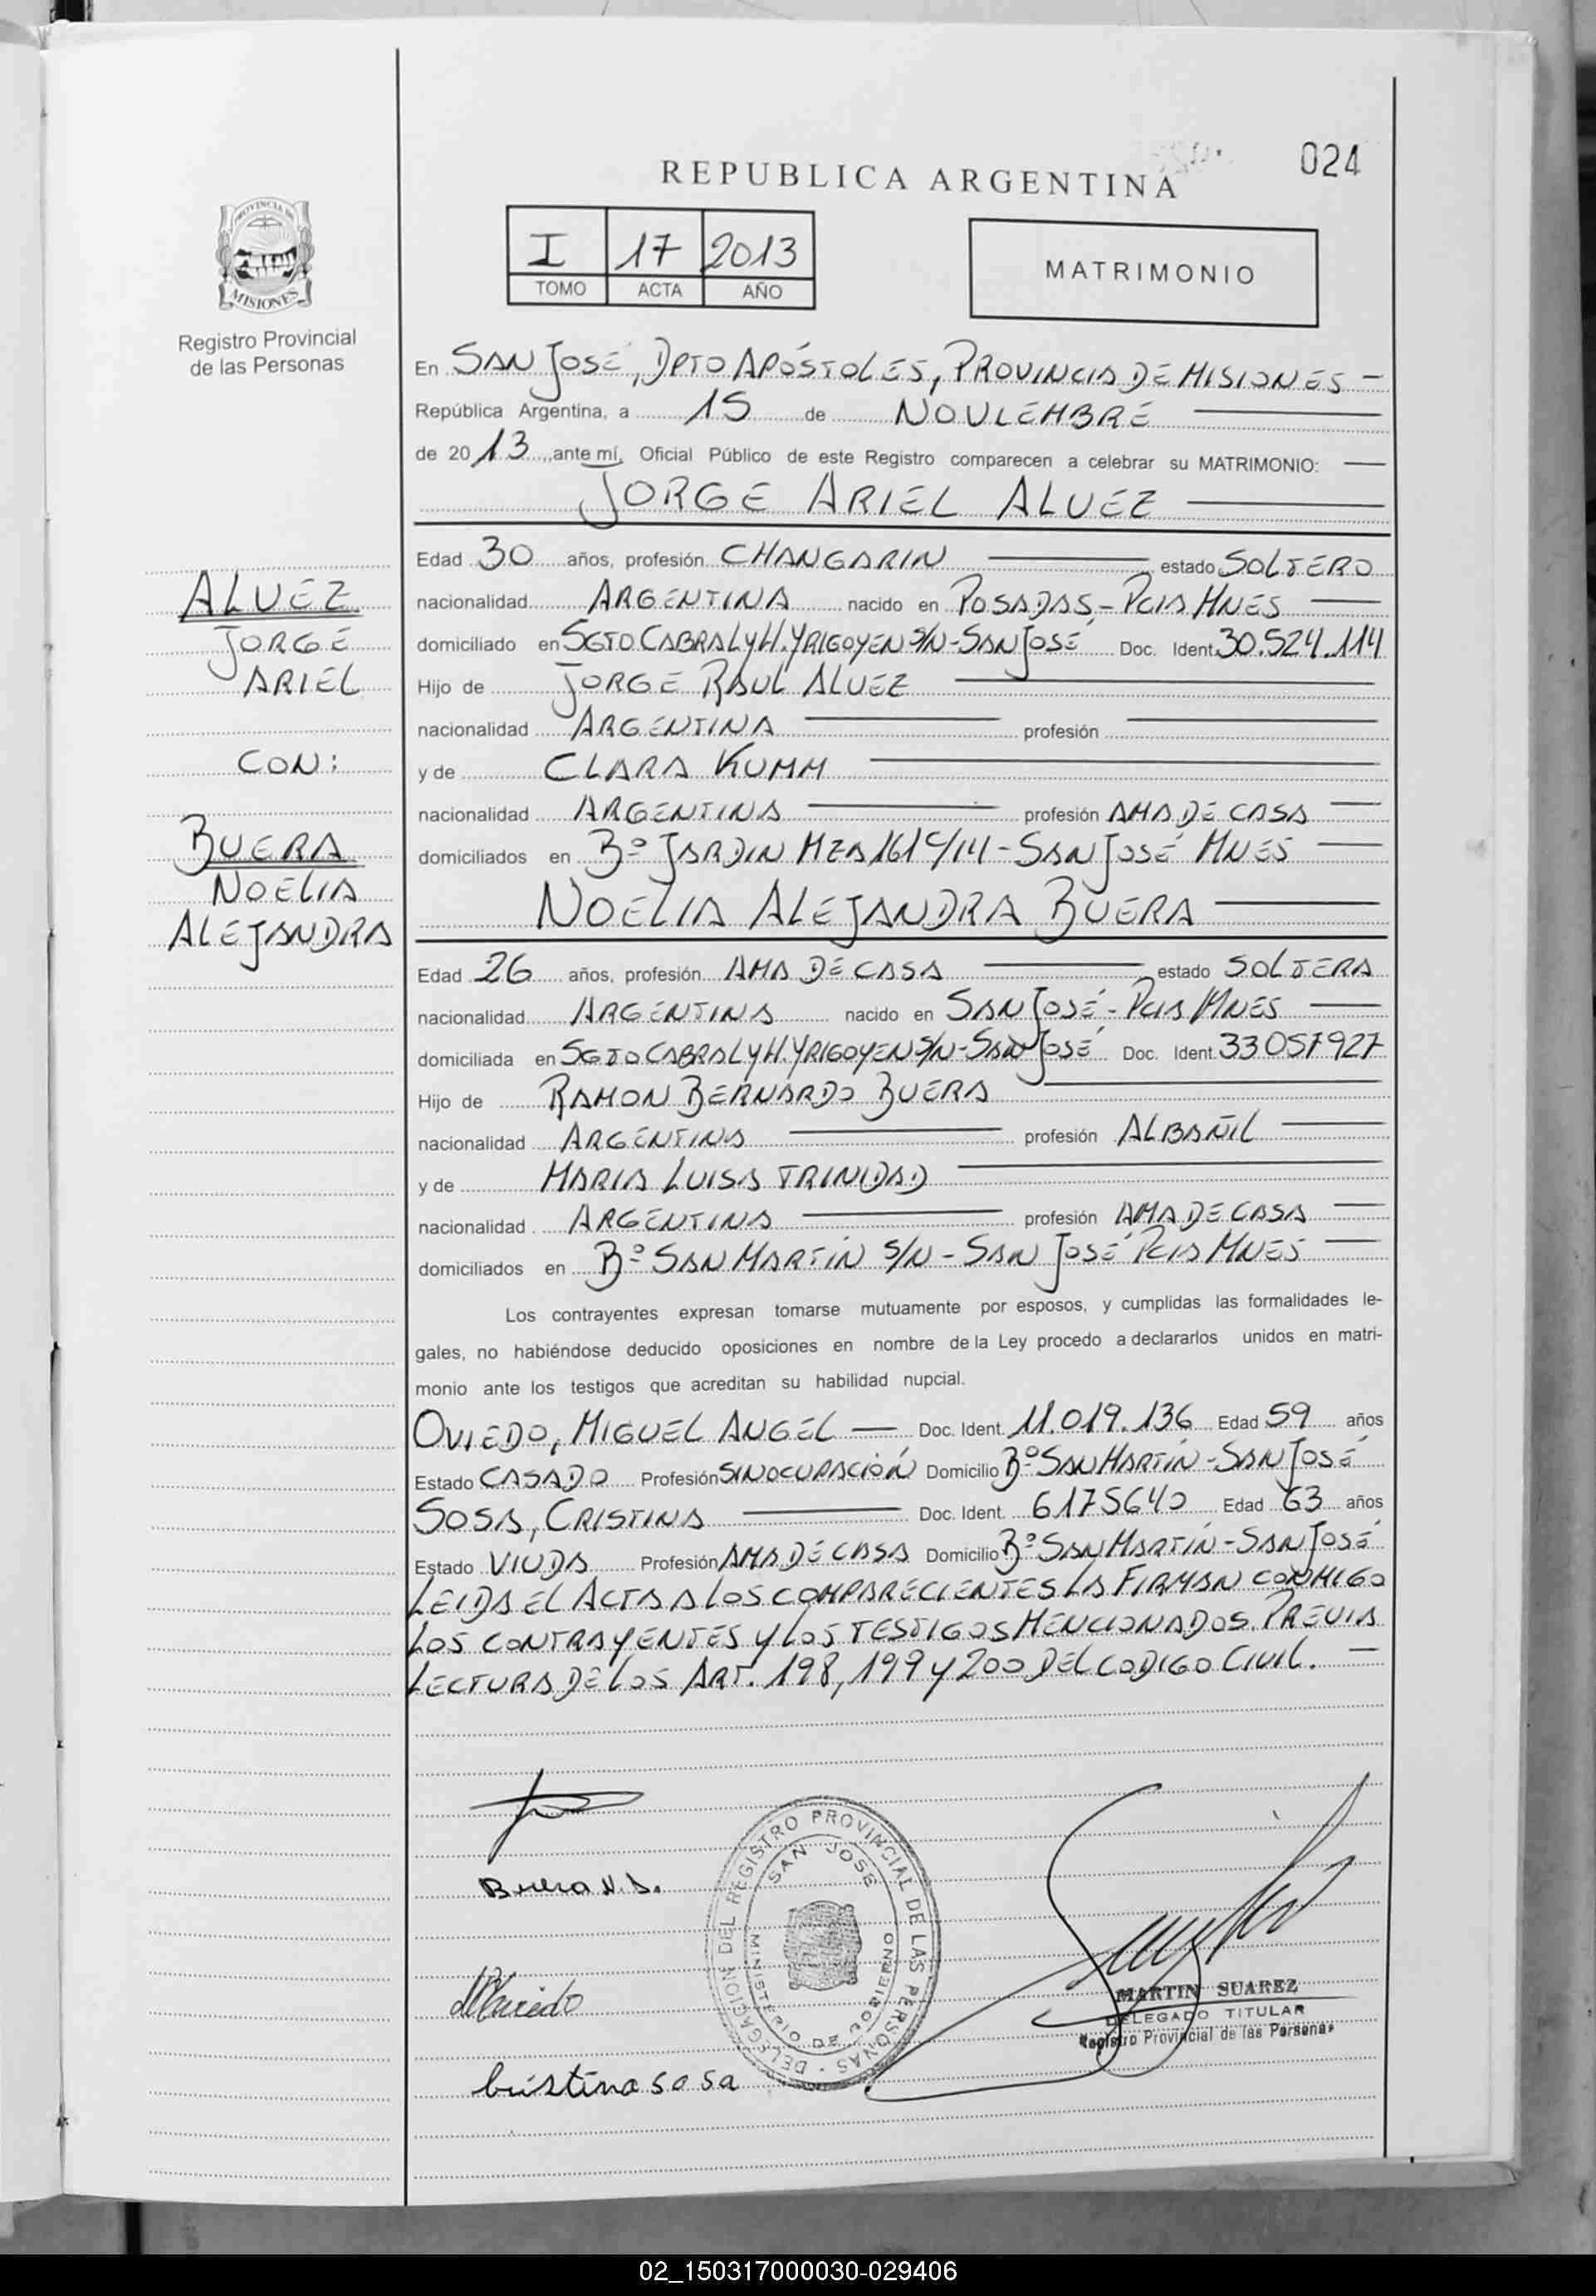 024
REPUBLICA ARGENTINA
PROVINCIA DE
MISIONES
Registro Provincial
de las Personas
I 17 2013
TOMO ACTA AÑO
MATRIMONIO
En SAN JOSÉ, DPTO APÓSTOLES, PROVINCIA DE MISIONES –
República Argentina, a 15 de NOVIEMBRE
de 2013, ante mí, Oficial Público de este Registro comparecen a celebrar su MATRIMONIO:
JORGE ARIEL ALVEZ
Edad 30 años, profesión CHANGARIN estado SOLTERO
nacionalidad ARGENTINA nacido en POSADAS – PCIA MNES
domiciliado en SGTO CABRAL Y H. YRIGOYEN S/N – SAN JOSÉ Doc. Ident. 30.524.114
Hijo de JORGE RAUL ALVEZ
nacionalidad ARGENTINA profesión
y de CLARA KUMM
nacionalidad ARGENTINA profesión AMA DE CASA
domiciliados en Bº JARDIN MZA 161 C/14 – SAN JOSÉ MNES
NOELIA ALEJANDRA BUERA
Edad 26 años, profesión AMA DE CASA estado SOLTERA
nacionalidad ARGENTINA nacido en SAN JOSÉ – PCIA MNES
domiciliada en SGTO CABRAL Y H. YRIGOYEN S/N – SAN JOSÉ Doc. Ident. 33057927
Hijo de RAMON BERNARDO BUERA
nacionalidad ARGENTINA profesión ALBAÑIL
y de MARIA LUISA TRINIDAD
nacionalidad ARGENTINA profesión AMA DE CASA
domiciliados en Bº SAN MARTÍN S/N – SAN JOSÉ PCIA MNES
ALVEZ
JORGE
ARIEL
CON:
BUERA
NOELIA
ALEJANDRA
Los contrayentes expresan tomarse mutuamente por esposos, y cumplidas las formalidades le-
gales, no habiéndose deducido oposiciones en nombre de la Ley procedo a declararlos unidos en matri-
monio ante los testigos que acreditan su habilidad nupcial.
OVIEDO, MIGUEL ANGEL — Doc. Ident. 11.019.136 Edad 59 años
Estado CASADO Profesión SIN OCUPACIÓN Domicilio Bº SAN MARTÍN – SAN JOSÉ
SOSA, CRISTINA Doc. Ident. 6175640 Edad 63 años
Estado VIUDA Profesión AMA DE CASA Domicilio Bº SAN MARTÍN – SAN JOSÉ
LEIDA EL ACTA A LOS COMPARECIENTES LA FIRMAN CONMIGO
LOS CONTRAYENTES Y LOS TESTIGOS MENCIONADOS. PREVIA
LECTURA DE LOS ART. 198, 199 Y 200 DEL CODIGO CIVIL. —
Buera N.A.
DELEGACION DEL REGISTRO PROVINCIAL DE LAS PERSONAS
SAN JOSE
MINISTERIO DE GOBIERNO
Cristina Sosa
MARTIN SUAREZ
DELEGADO TITULAR
Registro Provincial de las Personas
02_150317000030-029406